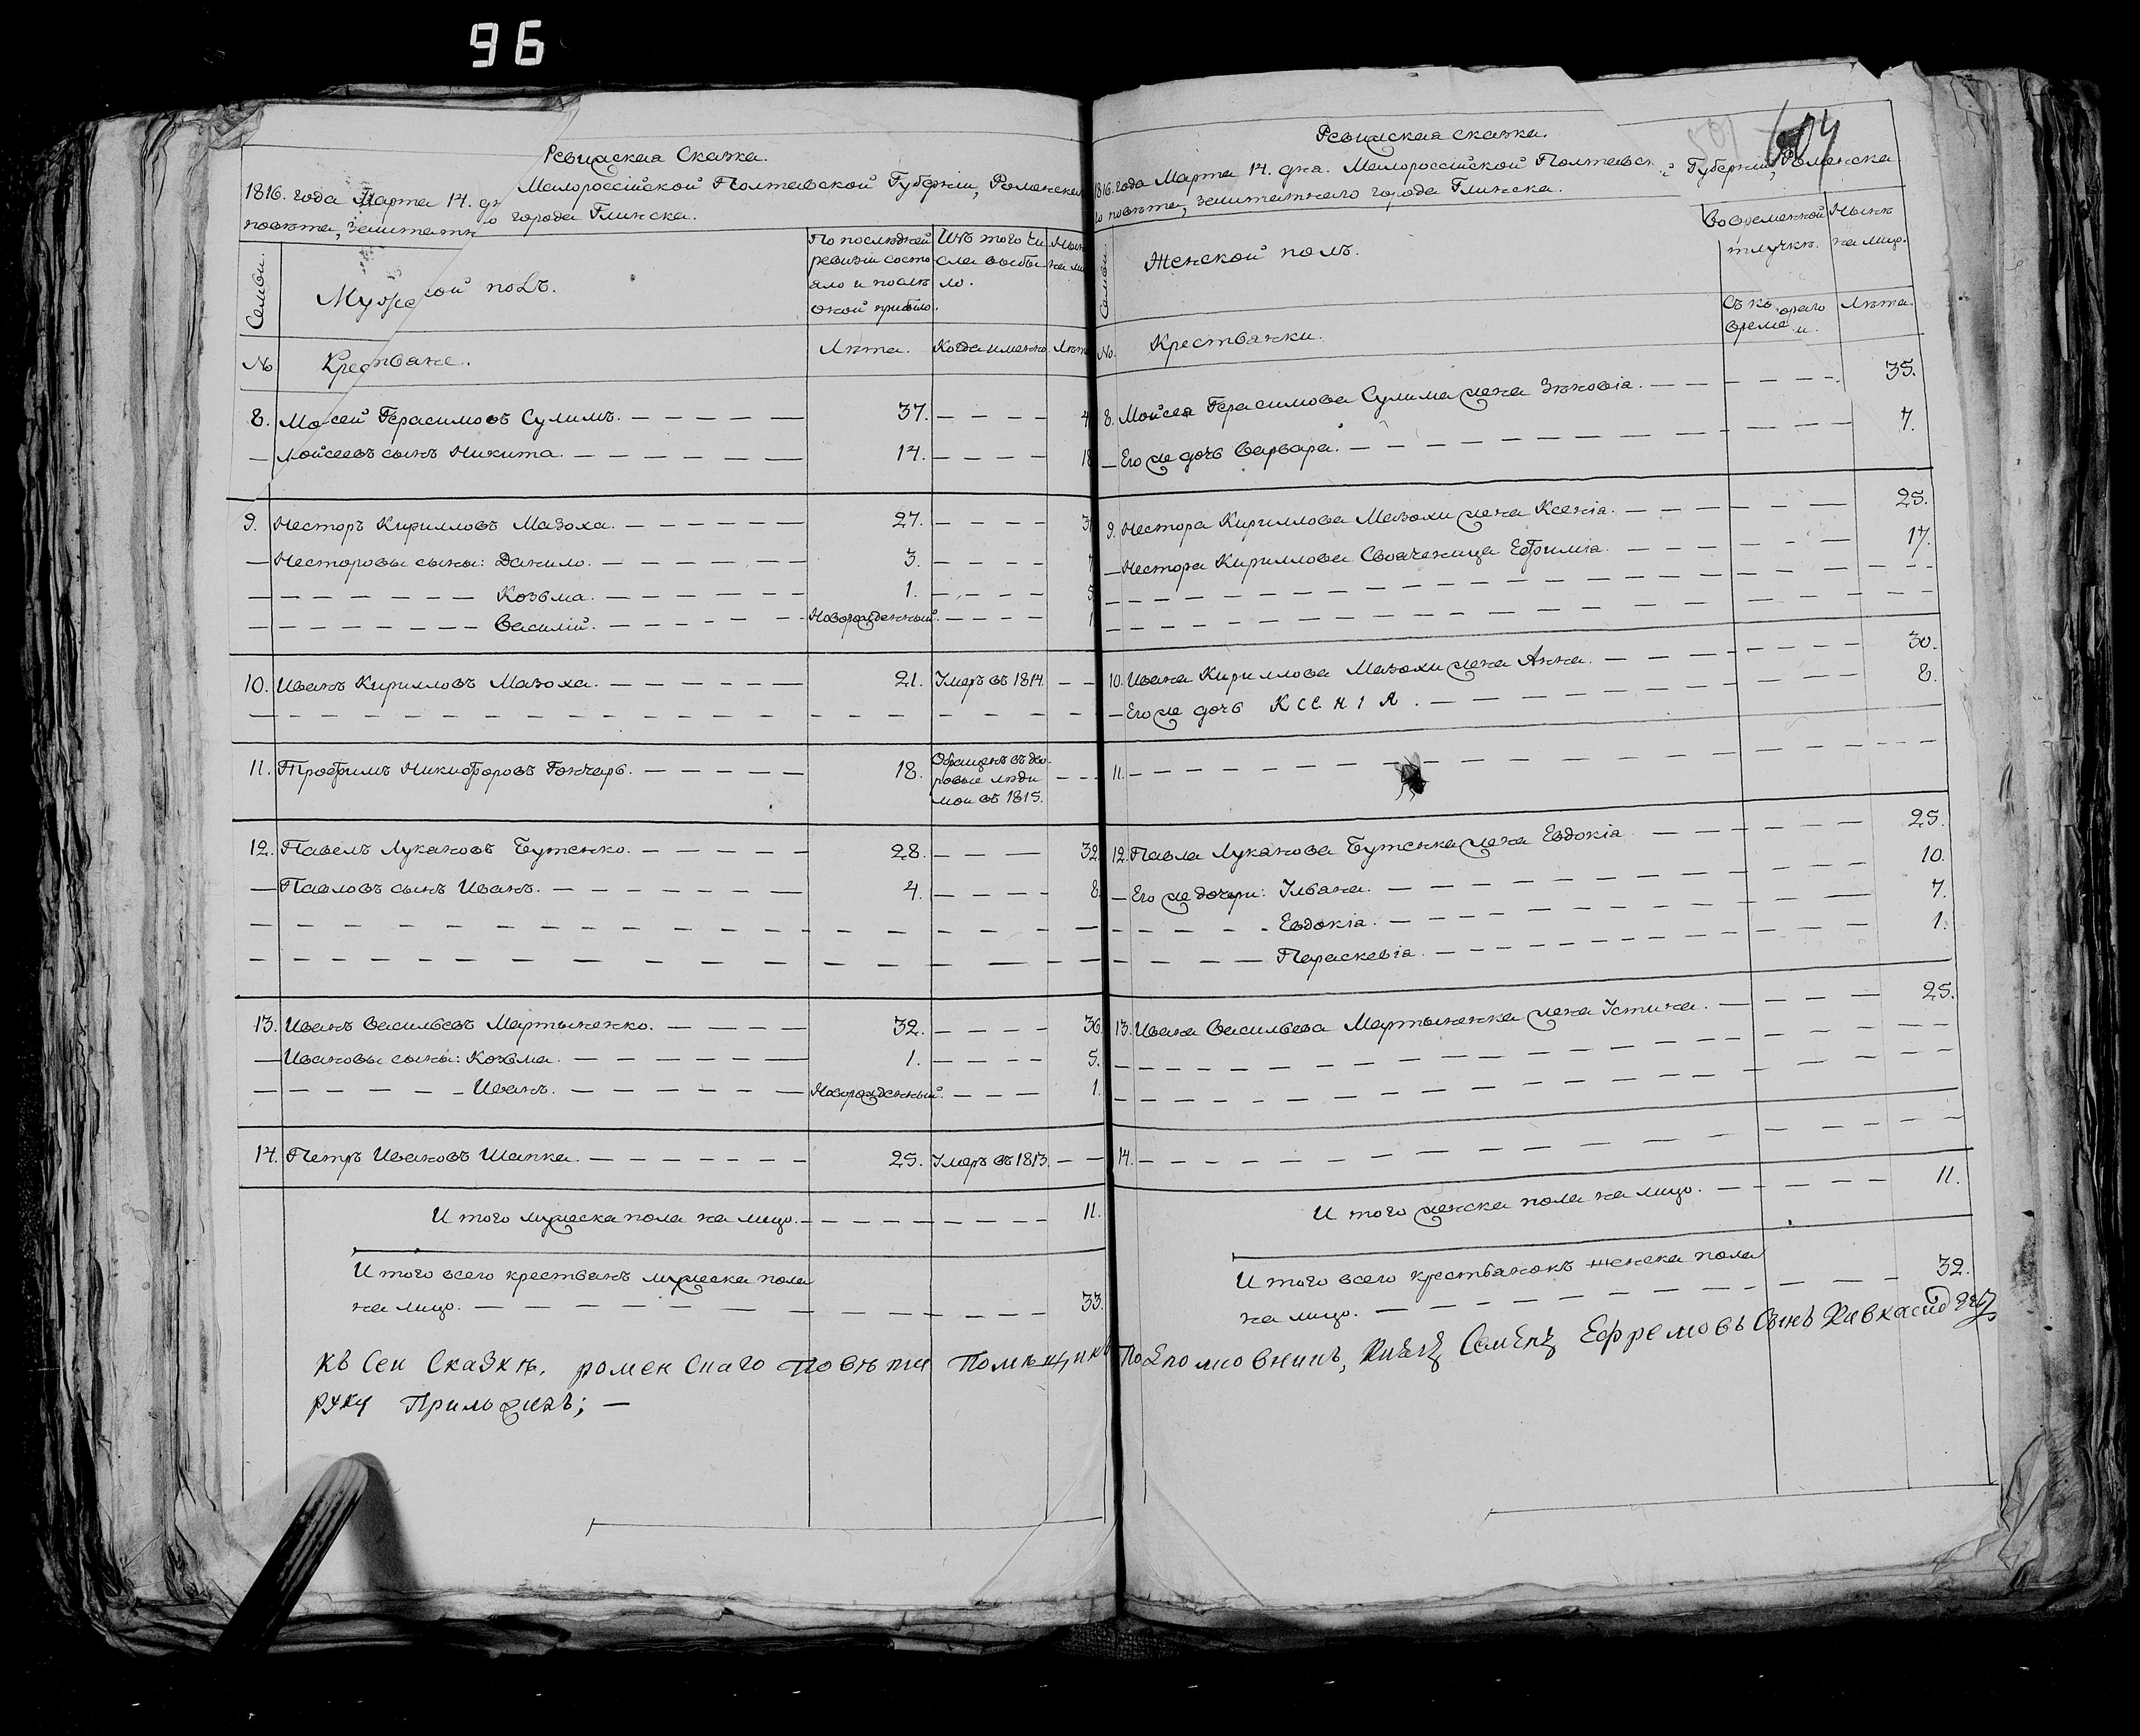 96
Ревизская Сказка.
1816. года Марта 14. дн Малороссійской Полтавской Губерніи, Роменска
повѣта, заштатн о города Глинска.
Семьи.
Муже кой полъ.
По последней ревизіи состо яло и послѣ оной прибыло.
Изъ того чи сла выбы ло.
Нын на ли
№
Крестьяне.
Лѣта.
Когда именно.
Лѣт
8. Мойсей Герасимовъ Сулимъ. 37. 4
Мойсеевъ сынъ Никита. 14. 18
9. Несторъ Кирилловъ Мазоха. 27. 3
Несторовы сыны: Данило. 3. 7
Козьма. 1. 5
Василій. Новорожденный. 1
10. Иванъ Кирилловъ Мазоха. 21. Умеръ въ 1814.
11. Трофимъ Никифоровъ Гончаръ. 18. Обращенъ въ дво-
ровые люди
мои въ 1815.
12. Павелъ Лукановъ Бутенко. 28. 32.
Павловъ сынъ Иванъ. 4. 8.
13. Иванъ Васильевъ Мартыненко. 32. 36.
Ивановы сыны: Козьма. 1. 5.
Иванъ. Новорожденный. 1.
14. Петръ Ивановъ Шапка. 25. Умеръ въ 1813.
И того мужеска пола на лицо. 11.
И того всего крестьянъ мужеска пола
на лицо. 33.
Къ Сеи Сказкѣ, роменскаго повѣта Помѣщикъ
руку Приложилъ;
Ревизская сказка.
604
1816. года Марта 14. дня. Малороссійской Полтавск й Губерніи, Роменска
го повѣта, заштатнаго города Глинска.
Семьи.
Женской полъ.
Во временной отлучкѣ.
Нынѣ на лицо.
№.
Крестьянки.
Съ ко тораго време и.
Лѣта.
8. Мойсея Герасимова Сулима жена Зѣновіа. 35.
Его же дочь Варвара. 7.
9. Нестора Кириллова Мазохи жена Ксеніа. 25.
Нестора Кириллова Своаченица Ефиміа. 17.
10. Ивана Кириллова Мазохи жена Анна. 30.
Его же дочь Ксенія. 8.
11.
12. Павла Луканова Бутенка жена Евдокіа 25.
Его же дочери: Ульана. 10.
Евдокіа. 7.
Параскевіа. 1.
13. Ивана Васильева Мартыненка жена Устина. 25.
14.
И того женска пола на лицо. 11.
И того всего крестьянокъ женска пола
на лицо. 32.
Подполковникъ, Князь Семенъ Ефремовъ Сынъ